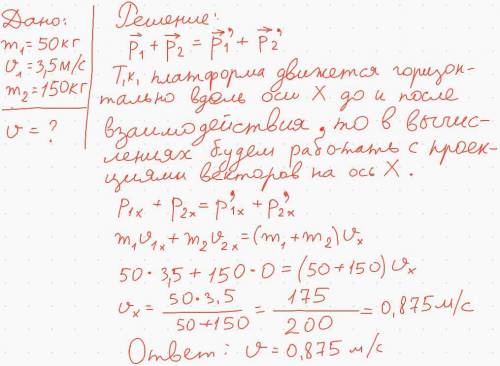 Дано:
m₁=50кг
υ₁=3,5м/с
m₂=150кг
υ=?
Решение:
p⃗₁ + p⃗₂ = p⃗₁' + p⃗₂'
Т.к. платформа движется горизон-
тально вдоль оси X до и после
взаимодействия, то в вычис-
лениях будем работать с проек-
циями векторов на ось X.
p₁ₓ + p₂ₓ = p'₁ₓ + p'₂ₓ
m₁υ₁ₓ + m₂υ₂ₓ = (m₁+m₂)υₓ
50·3,5 + 150·0 = (50+150)υₓ
υₓ = 50·3,5 / 50+150 = 175 / 200 = 0,875 м/с
Ответ: υ = 0,875 м/с